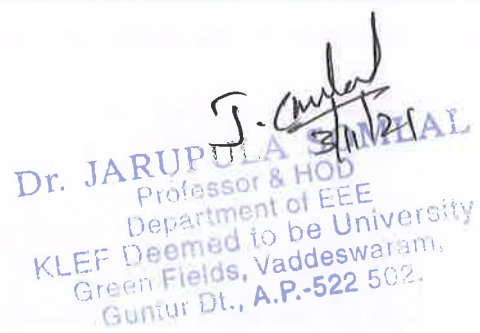 3/11/21
Dr. JARUPULA
Professor & HOD
Department of EEE
KLEF Deemed to be University
Green Fields, Vaddeswaram,
Guntur Dt., A.P.-522 502.